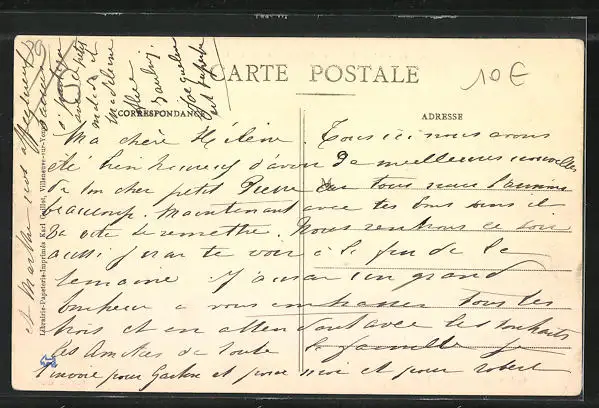 CARTE POSTALE
10 €
CORRESPONDANCE
ADRESSE
Ma chère Hélène. Tous ici nous avons
été bien heureux d'avoir de meilleures nouvelles
de ton cher petit Pierre car tous nous l'aimons
beaucoup. Maintenant avec tes bons soins il
va vite se remettre. Nous rentrons ce soir
aussi j'irai te voir à la fin de la
semaine J'aurai un grand
bonheur à vous embrasser tous les
trois et en attendant avec les souhaits
les amitiés de toute la famille je
t'envoie pour Gaston et pour moi et pour robert
et Marthe nos
Madeleine
Librairie-Papeterie-Imprimerie Karl Guillot, Villeneuve-sur-Yonne